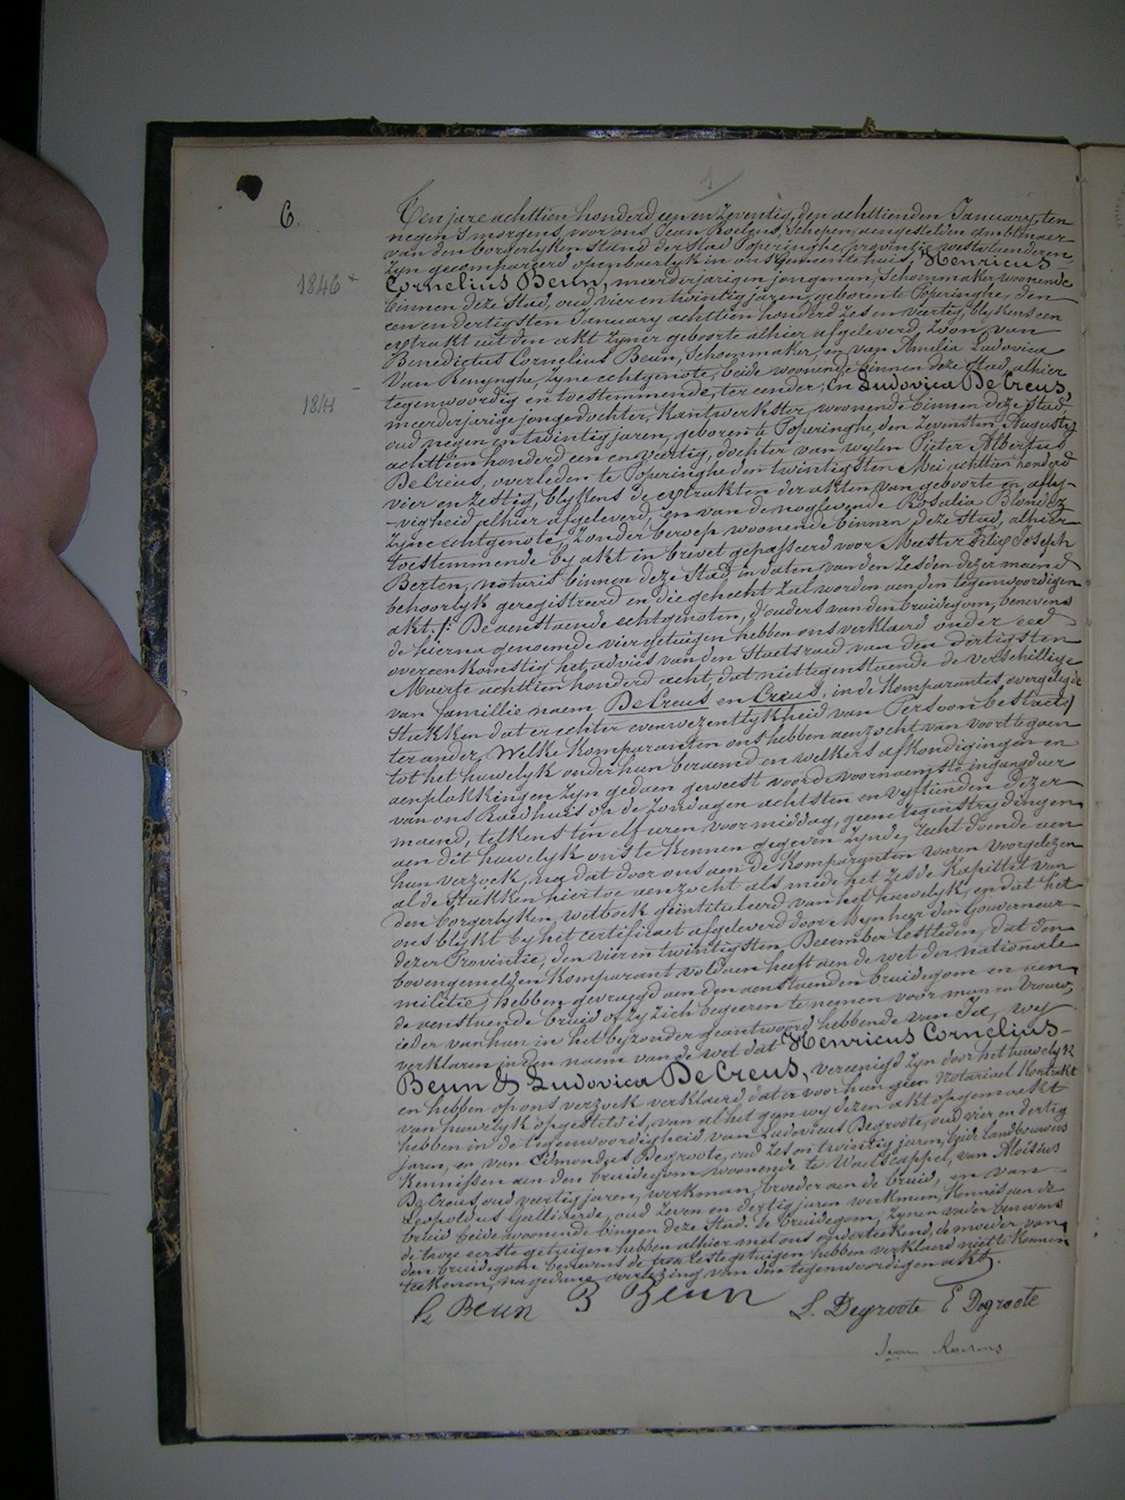 1
6.
Ten jare achttien honderd een en Zeventig, den achttienden January, ten
negen ½ morgens, voor ons Jean Roelens, Schepen, aengestelden Ambtenaer
van den borgerlyken Stand der Stad Poperinghe, provintie westvlaenderen
Zyn gecompareerd openbaerlyk in ons Gemeentehuis, Henricus
1846 +
Cornelius Beun, meerderjarigen jongman, Schoenmaker, woonende
binnen deze Stad, oud vier en twintig jaren, geboren te Poperinghe, den
een en dertigsten January achttien honderd Zes en veertig, blykens een
extrakt uit den akt Zyner geboorte alhier afgeleverd, Zoon van
Benedictus Cornelius Beun, Schoenmaker, en van Amelia Ludovica
Van Renynghe, Zyne echtgenote, beide woonende binnen deze Stad, alhier
tegenwoordig en toestemmende, ter eender; En Ludovica DeCreus,
1841
meerderjarige jongedochter, Kantwerkster, woonende binnen deze Stad,
oud negen en twintig jaren, geboren te Poperinghe, den Zevensten Augusty
achttien honderd een en veertig, dochter van wylen Pieter Albertus
DeCreus, overleden te Poperinghe den twintigsten Mei achttien honderd
vier en Zestig, blykens de extrakten der akten van geboorte en afly-
-vigheid alhier afgeleverd, en van de noglevende Rosalia Blondez
Zyne echtgenote, Zonder beroep woonende binnen deze Stad, alhier
toestemmende by akt in brevet gepasseerd voor Meester Felix Joseph
Berten, notaris binnen deze Stad, in daten van den Zesden dezer maend
behoorlyk geregistreerd en die gehecht Zal worden aen den tegenwoordigen
akt. /: De aenstaende echtgenoten, d'ouders van den bruidegom, benevens
de hierna genoemde vier getuigen hebben ons verklaerd onder eed
overeenkomstig het advies van den Staetsraed van den dertigsten
Maerte achttien honderd acht, dat niettegenstaende de verschillige
van famillie naem DeCreus en Creus, in de Komparantes overgelegde
Stukken dat er echter evenwezentlykheid van Persoon bestaet)
ter ander, Welke Komparanten ons hebben aenzocht van voort te gaen
tot het huwelyk onder hun beraemd en welkers afkondigingen en
aenplakkingen Zyn gedaen geweest voor de voornaemste ingangdeur
van ons Raedhuis op de Zondagen achtsten en vyftienden dezer
maend, telkens ten elf uren voormiddag, geene tegenstrydingen
aen dit huwelyk ons te kennen gegeven Zynde, recht doende aen
hun verzoek, na dat door ons aen de Komparanten waren voorgelezen
al de Stukken hiertoe aenzocht als mede het Zesde Kapittel van
den borgerlyken wetboek geïntituleerd van het huwelyk, en dat het
ons blykt by het certificaet afgeleverd door Mynheer den Gouverneur
dezer Provintie, den vier en twintigsten December lestleden, dat den
bovengemelden Komparant voldaen heeft aen de wet der nationale
militie, hebben gevraegd aen den aenstaenden bruidegom en aen
de aenstaende bruid of zy Zich begeeren te nemen voor man en vrouw,
ieder van hun in het byzonder geantwoord hebbende van Ja, wy
verklaren in den naem van de wet dat Henricus Cornelius
Beun & Ludovica DeCreus, vereenigd Zyn door het huwelyk
en hebben op ons verzoek verklaerd dat er voor hun geen Notariael Kontrakt
van huwelyk opgesteld is, van al het gene wy dezen akt opgemaekt
hebben in de tegenwoordigheid van Ludovicus Degroote, oud vier en dertig
jaren, en van Edmondus Degroote, oud Zes en twintig jaren, beide Landbouwers
Kennissen aen den bruidegom woonende te Watoucappel, van Aloïsius
DeCreus, oud veertig jaren, werkman, broeder aen de bruid, en van
Leopoldus Gallivarde, oud Zeven en dertig jaren werkman, Kennis aen de
bruid beide woonende binnen deze Stad. de bruidegom, Zynen vader benevens
de twee eerste getuigen hebben alhier met ons onderteekend, de moeder van
den bruidegom benevens de twee leste getuigen hebben verklaerd niet te konnen
teekenen, na gedane voorlezing van den tegenwoordigen akt.
H Beun B Beun L. Degroote E Degroote
Jean Roelens